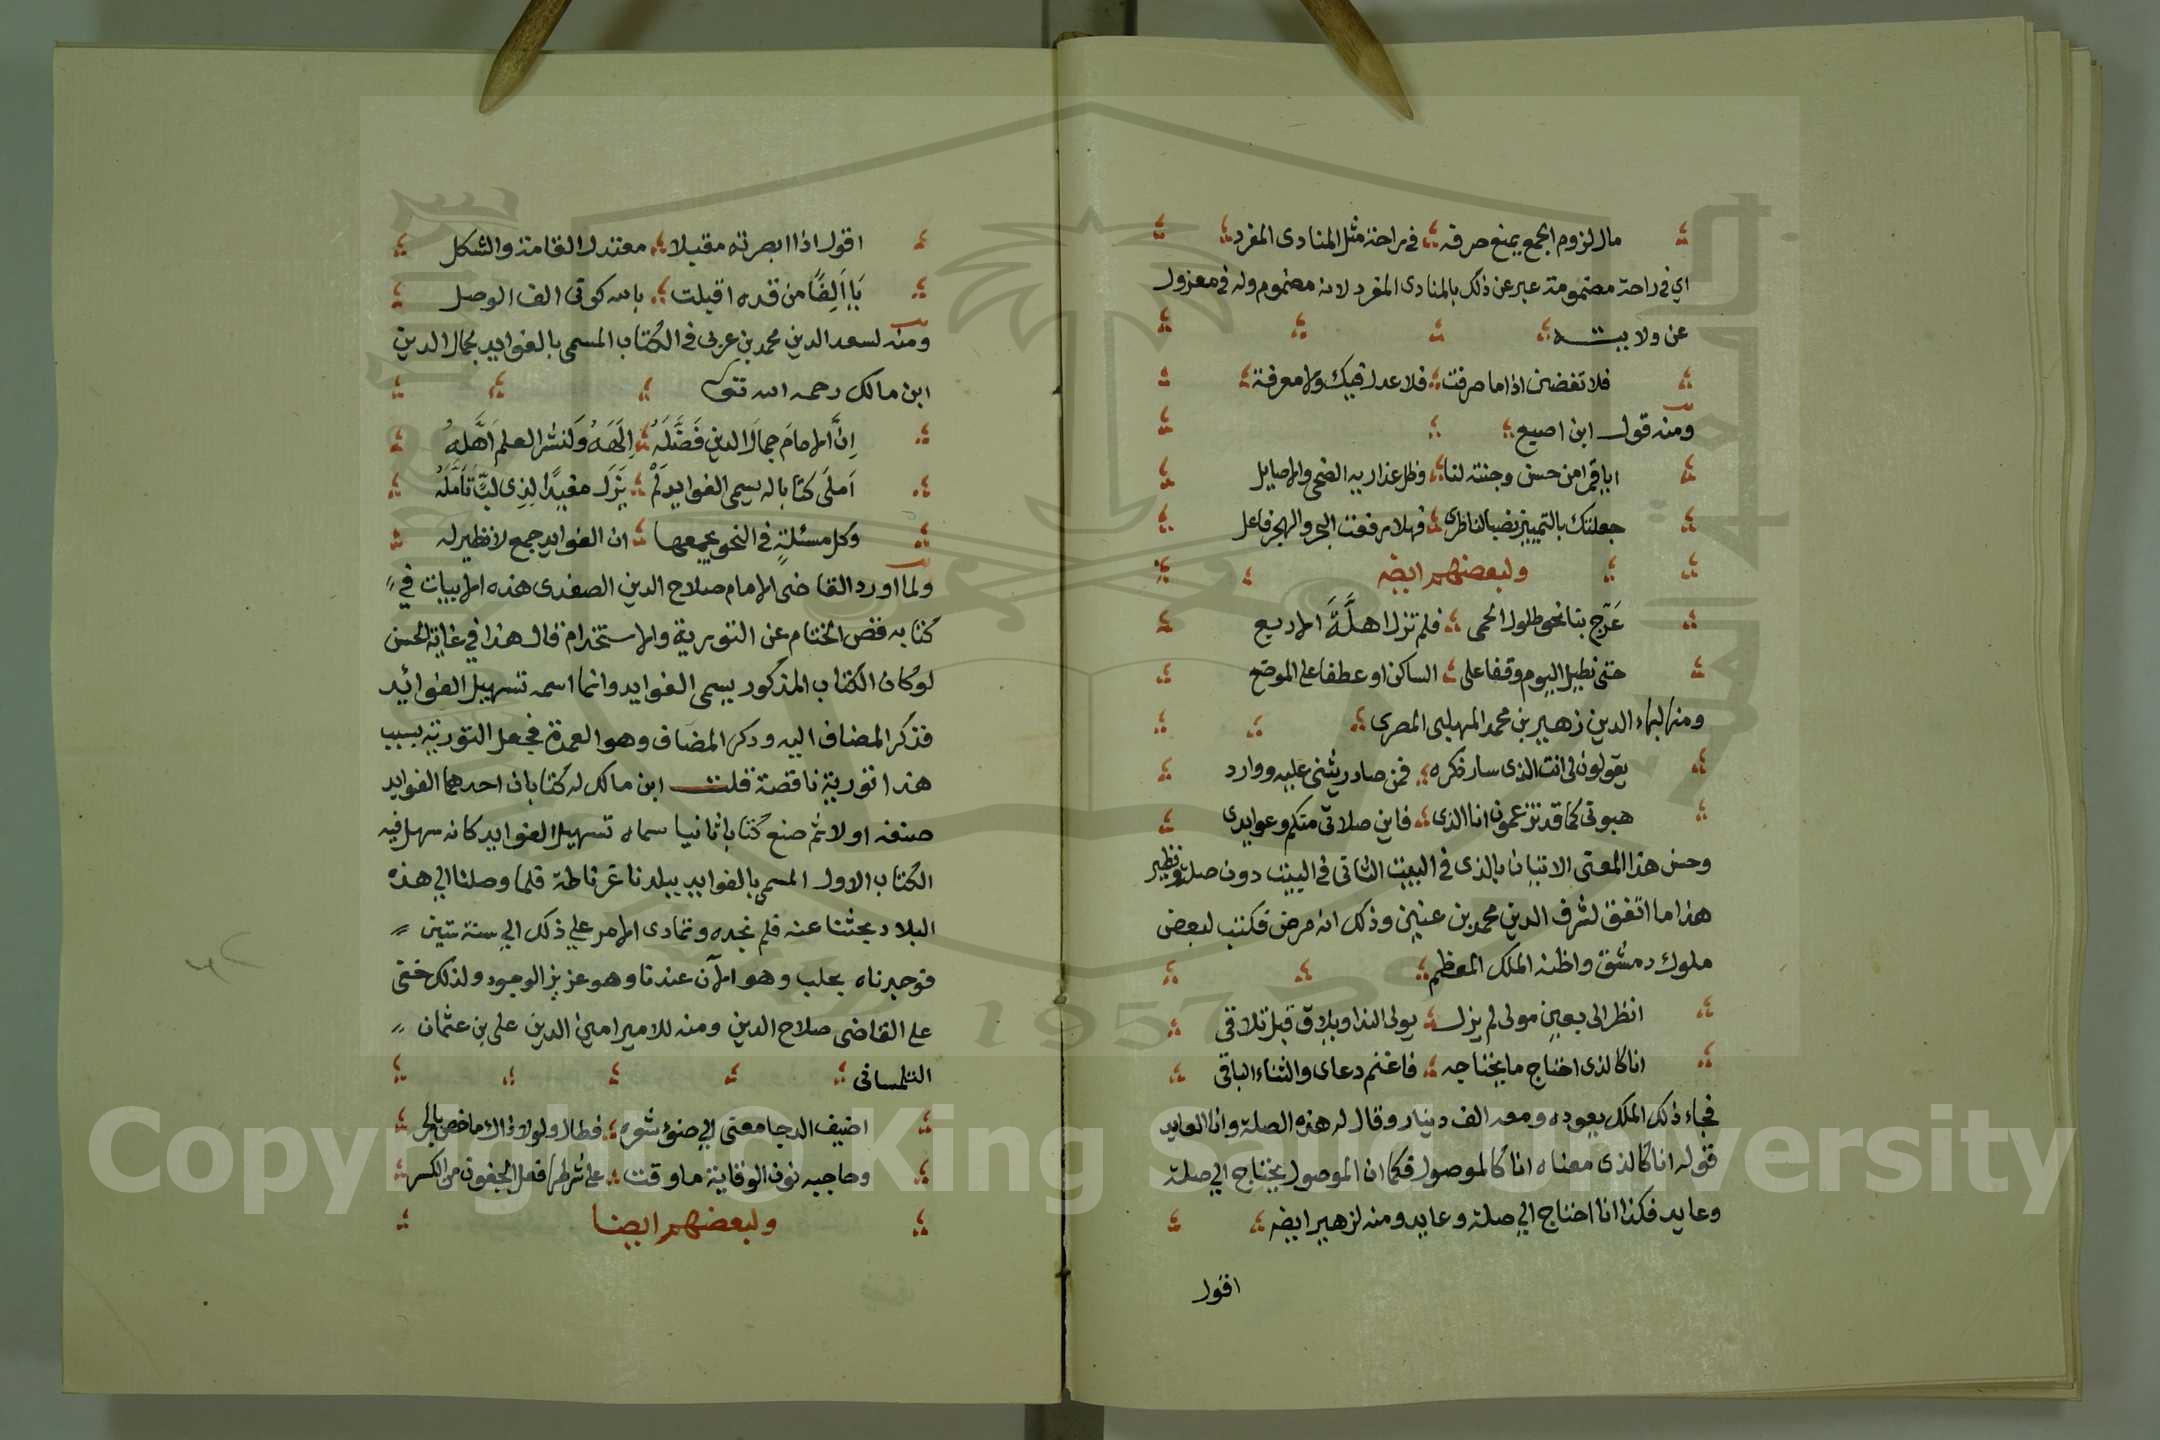 مال لزوم الجمع يمنع صرفه ؛ في راحة مثل المنادى المفرد
اي في راحة مضمومة عبر عن ذلك بالمنادى المفرد لانه مضموم وله في معزول
عن ولايته
فلا تغضبن اذا ما صرفت ؛ فلا عدل فيك ولا معرفة
ومنه قول ابن اصبع
ايا قمرا من حسن وجنته لنا ؛ وظل عذاريه الضحى والاصايل
جعلتك بالتمييز نصبا لناظري ؛ فهلا رفعت الهجر والهجر فاعل
ولبعضهم ايضه
عرّج بنا نحو طلول الحمى ؛ فلم تزل اهلَّةَ الاربع
حتى نطيل اليوم وقفا على ؛ الساكن او عطفا على الموضع
ومنه لبهاء الدين زهير بن محمد المهلبى المصرى
يقولون لى انت الذى سار ذكره ؛ فمن صادر يثنى عليه ووارد
هبونى كما قد تزعمون انا الذى ؛ فاين صلاتى منكم وعوايدى
وحسن هذا المعنى الاتيان بالذى في البيت الثانى في البيت دون صلة ونظير
هذا ما اتفق لشرف الدين محمد بن عنين وذلك انه مرض فكتب لبعض
ملوك دمشق واظنه الملك المعظم
انظر الى بعين مولى لم يزل ؛ يولى الندا وبلاق قبل تلاقى
انا كالذى احتاج ما يحتاجه ؛ فاغنم دعاى والثناء الباقى
فجاء ذلك الملك يعوده ومعه الف دينار وقال له هذه الصلة وانا العايد
فقوله انا كالذى معناه انا كالموصول فكما ان الموصول يحتاج الي صلة
وعايد فكذا انا احتاج الي صلة وعايد ومنه لزهير ايضه
اقول
اقول اذا ابصرته مقبلا ؛ معتدل القامة والشكل
يَا اَلِفًا من قده اقبلت ؛ بالله كونى الف الوصل
ومنه لسعد الدين محمد بن عربى في الكتاب المسمى بالفوايد لجمال الدين
ابن مالك رحمه الله تتى
اِنَّ الامامَ جمالَ الدين فَضَّلَهُ ؛ اِلَهَهُ وَلنشر العلم اَهَّلهُ
اَملَى كتابا له يسمى الفوايد لَمْ ؛ يَزَل مفيدًا لِذِى لبٍّ تَاَمَّلَهُ
وكل مسئلةٍ في النحو يجمعها ؛ ان الفوايد جمع لا نظير له
ولما اورد القاضى الامام صلاح الدين الصفدى هذه الابيات في
كتابه فض الختام عن التورية والاستخدام قال هذا في غاية الحسن
لو كان الكتاب المذكور يسمى الفوايد وانما اسمه تسهيل الفوائد
فذكر المضاف اليه وذكر المضاف وهو العمدة فجعل التورية بسبب
هذا تورية ناقصة قلت ابن مالك له كتابان احدهما الفوايد
صنفه اولا ثم صنع كتابا ثانيا سماه تسهيل الفوايد كانه سهل فيه
الكتاب الاول المسمى بالفوايد ببلدنا غرناطة فلما وصلنا الي هذه
البلاد بحثنا عنه فلم نجده وتمادى الامر علي ذلك الي سنة ستين
فوجدناه بحلب وهو الآن عندنا وهو عزيز الوجود ولذلك خفى
على القاضى صلاح الدين ومنه للامير امين الدين على بن عثمان
التلمسانى
اضيف الدجا معنى الي ضوء شعره ؛ فطال ولولا ذاك ما خص بالجر
وحاجبه نون الوقاية ما وقت ؛ على شرطها فعل الجفون من الكسر
ولبعضهم ايضا
Copyright © King Saud University
1957